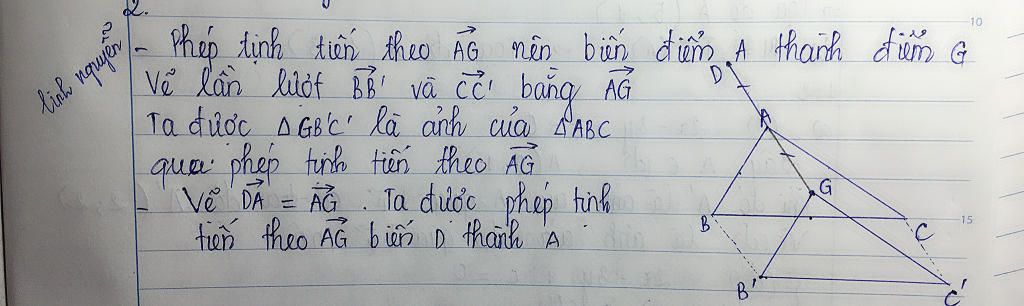 2.
- Phép tịnh tiến theo AG nên biến điểm A thành điểm G
Vẽ lần lượt BB' và CC' bằng AG
Ta được △GB'C' là ảnh của △ABC
qua phép tịnh tiến theo AG
- Vẽ DA = AG . Ta được phép tịnh
tiến theo AG biến D thành A
linh nguyễn
D
A
G
B
C
B'
C'
10
15